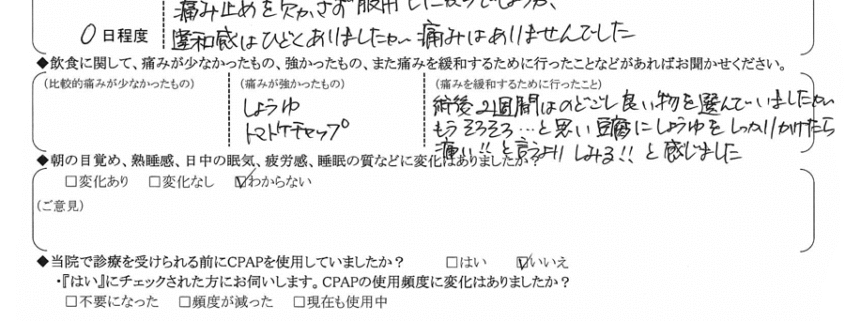 痛み止めを欠かさず服用したからでしょうか、
0 日程度
違和感はひどくありましたが 痛みはありませんでした
◆飲食に関して、痛みが少なかったもの、強かったもの、また痛みを緩和するために行ったことなどがあればお聞かせください。
(比較的痛みが少なかったもの) (痛みが強かったもの) (痛みを緩和するために行ったこと)
しょうゆ
トマトケチャップ
術後2週間はのどごし良い物を選んでいましたが
もうそろそろ…と思い豆腐にしょうゆをしっかりかけたら
痛い!!と言うよりしみる!!と感じました
◆朝の目覚め、熟睡感、日中の眠気、疲労感、睡眠の質などに変化はありましたか?
□変化あり □変化なし ☑わからない
(ご意見)
◆当院で診療を受けられる前にCPAPを使用していましたか? □はい ☑いいえ
・『はい』にチェックされた方にお伺いします。CPAPの使用頻度に変化はありましたか?
□不要になった □頻度が減った □現在も使用中